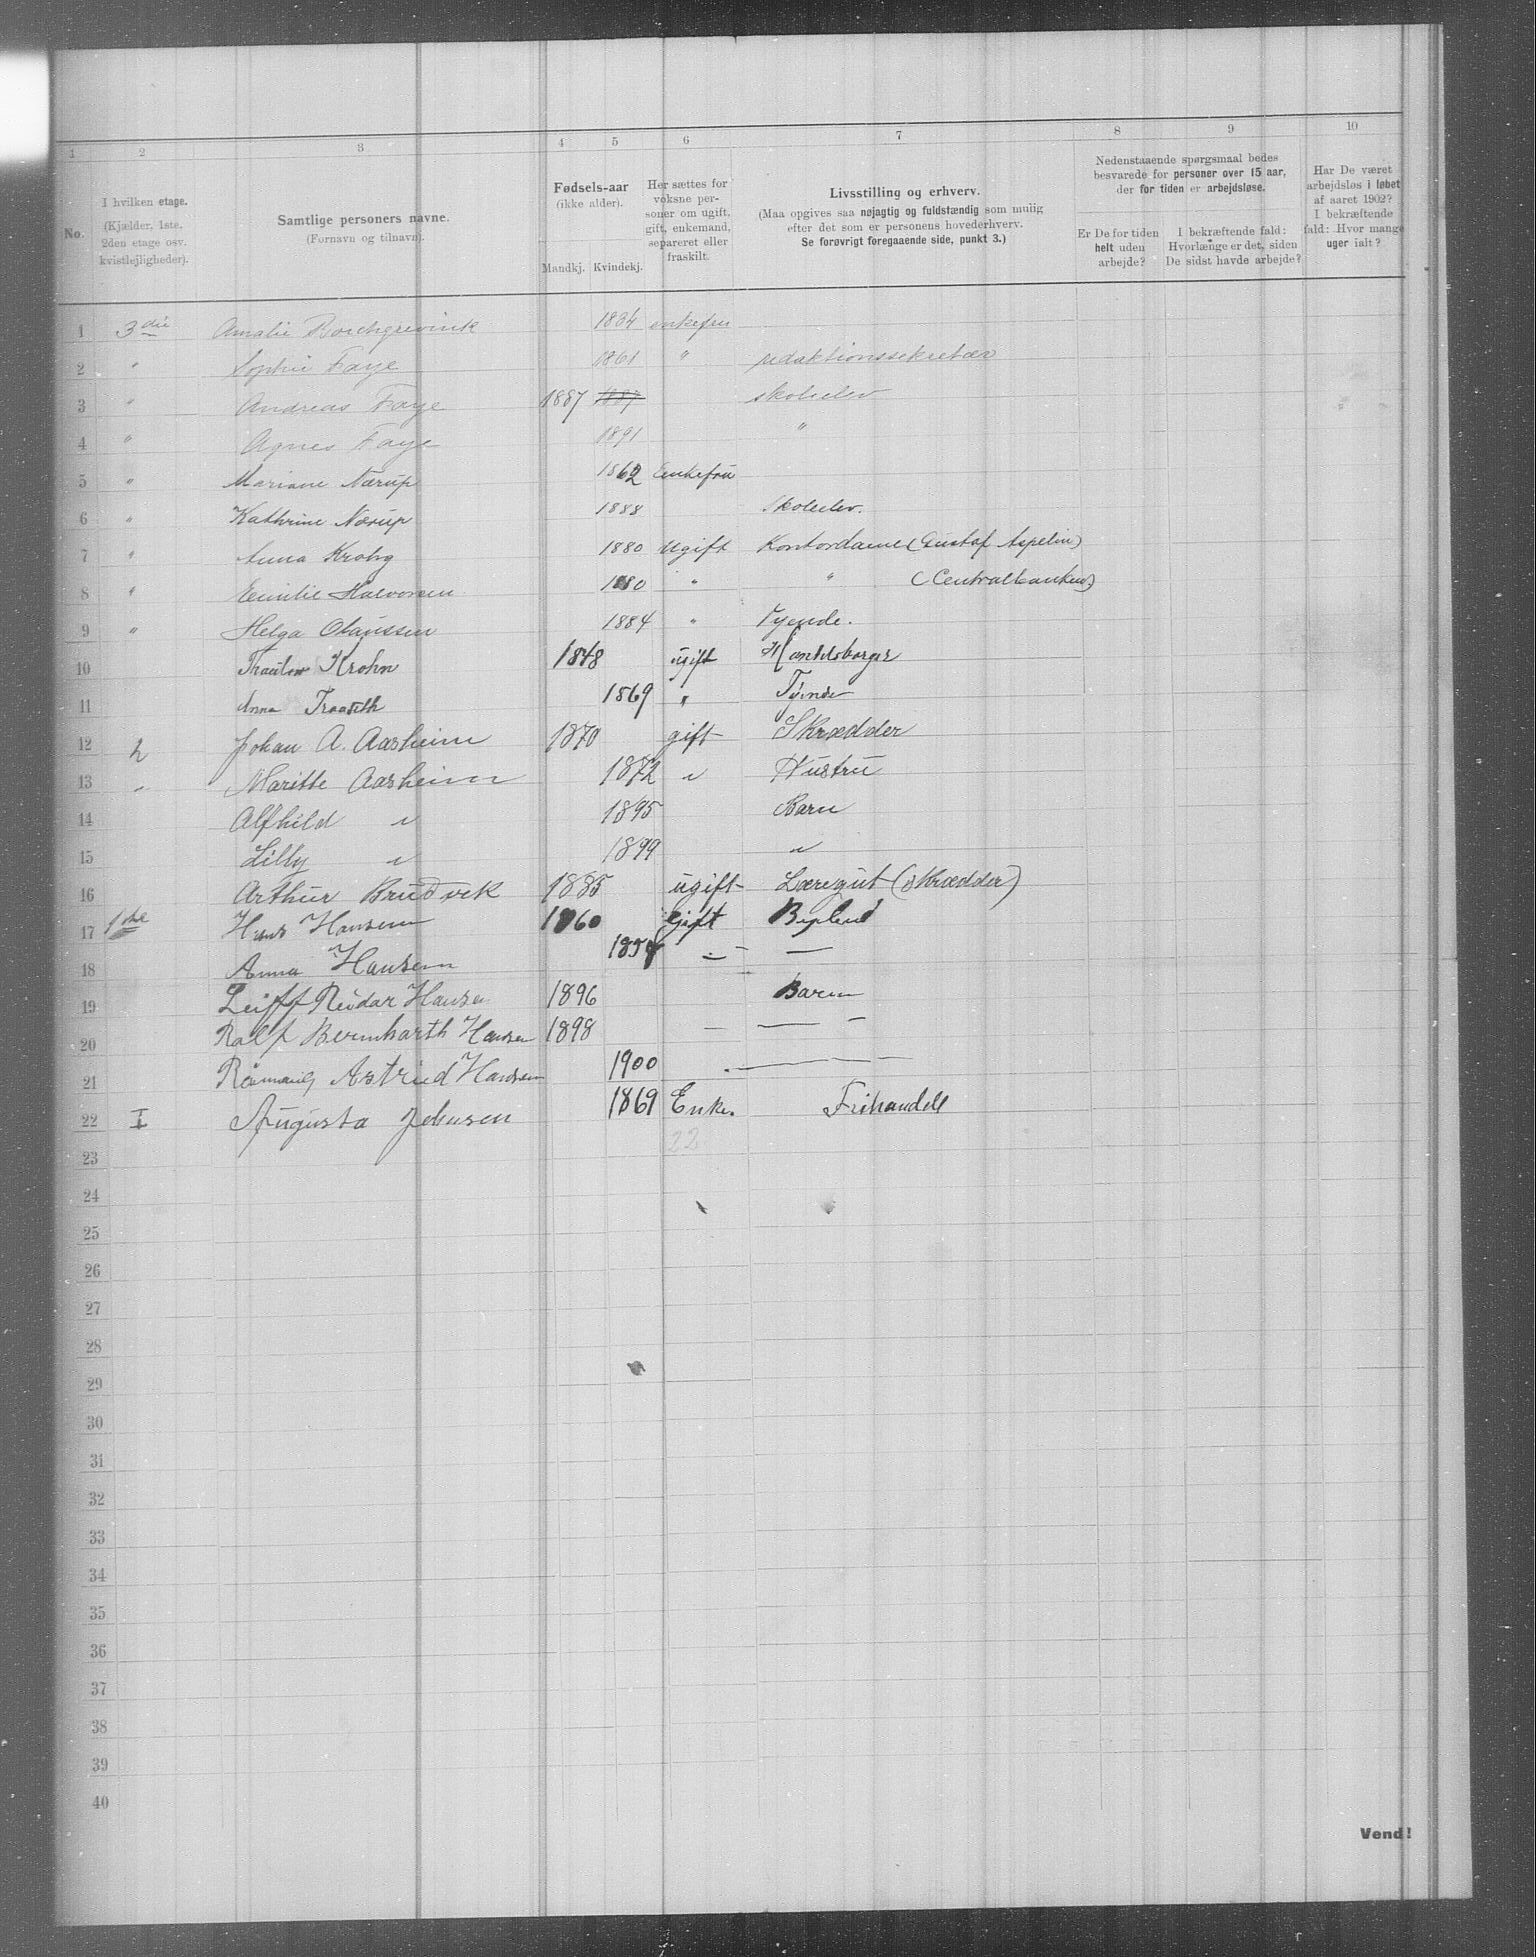 1 2 3 4 5 6 7 8 9 10
No.
I hvilken etage.
(Kjælder, 1ste.
2den etage osv.
kvistlejligheder).
Samtlige personers navne.
(Fornavn og tilnavn).
Fødsels-aar
(ikke alder).
Mandkj. Kvindekj.
Her sættes for
voksne per-
soner om ugift,
gift, enkemand,
separeret eller
fraskilt.
Livsstilling og erhverv.
(Maa opgives saa nøjagtig og fuldstændig som muiig
efter det som er personens hovederhverv.
Se forøvrigt foregaaende side, punkt 3.)
Nedenstaaende spørgsmaal bedes
besvarede for personer over 15 aar,
der for tiden er arbejdsløse.
Er De for tiden
helt uden
arbejde?
I bekræftende fald:
Hvorlænge er det, siden
De sidst havde arbejde?
Har De været
arbejdsløs i løbet
af aaret 1902?
I bekræftende
fald: Hvor mange
uger ialt?
1 3die Amalie Borchgrevink 1834 enkefru
2 " Sophie Faye 1861 " redaktionssekretær
3 " Andreas Faye 1887 1887 skoleelev
4 " Agnes Faye 1891 "
5 " Mariane Nærup 1862 Enkefru
6 " Kathrine Nærup 1888 Skoleelev.
7 " Anna Krohg 1880 Ugift Kontordame (Gustaf Aspelin)
8 " Emilie Halvorsen 1880 " " (Centralbanken)
9 " Helga Olaussen 1884 " Tyende.
10 Krohn 1848 ugift Handelsborger
11 Anna Traaseth 1869 " Tyende
12 2 Johan A. Aasheim 1870 gift Skrædder
13 " Maritte Aasheim 1872 " Hustru
14 Alfhild " 1895 Barn
15 Lilly " 1899 "
16 Arthur Brudvik 1885 ugift Læregut (Skrædder)
17 1ste Hans Hansen 1860 Gift Bybud
18 Anna Hansen 1854 - —
19 Leiff Reidar Hansen 1896 Barn
20 Ralf Bernharth Hansen 1898 — — —
21 Astrid Hansen 1900 — — —
22 I Augusta Johnsen 1869 Enke. Frihandel
23 22
24
25
26
27
28
29
30
31
32
33
34
35
36
37
38
39
40
Vend!